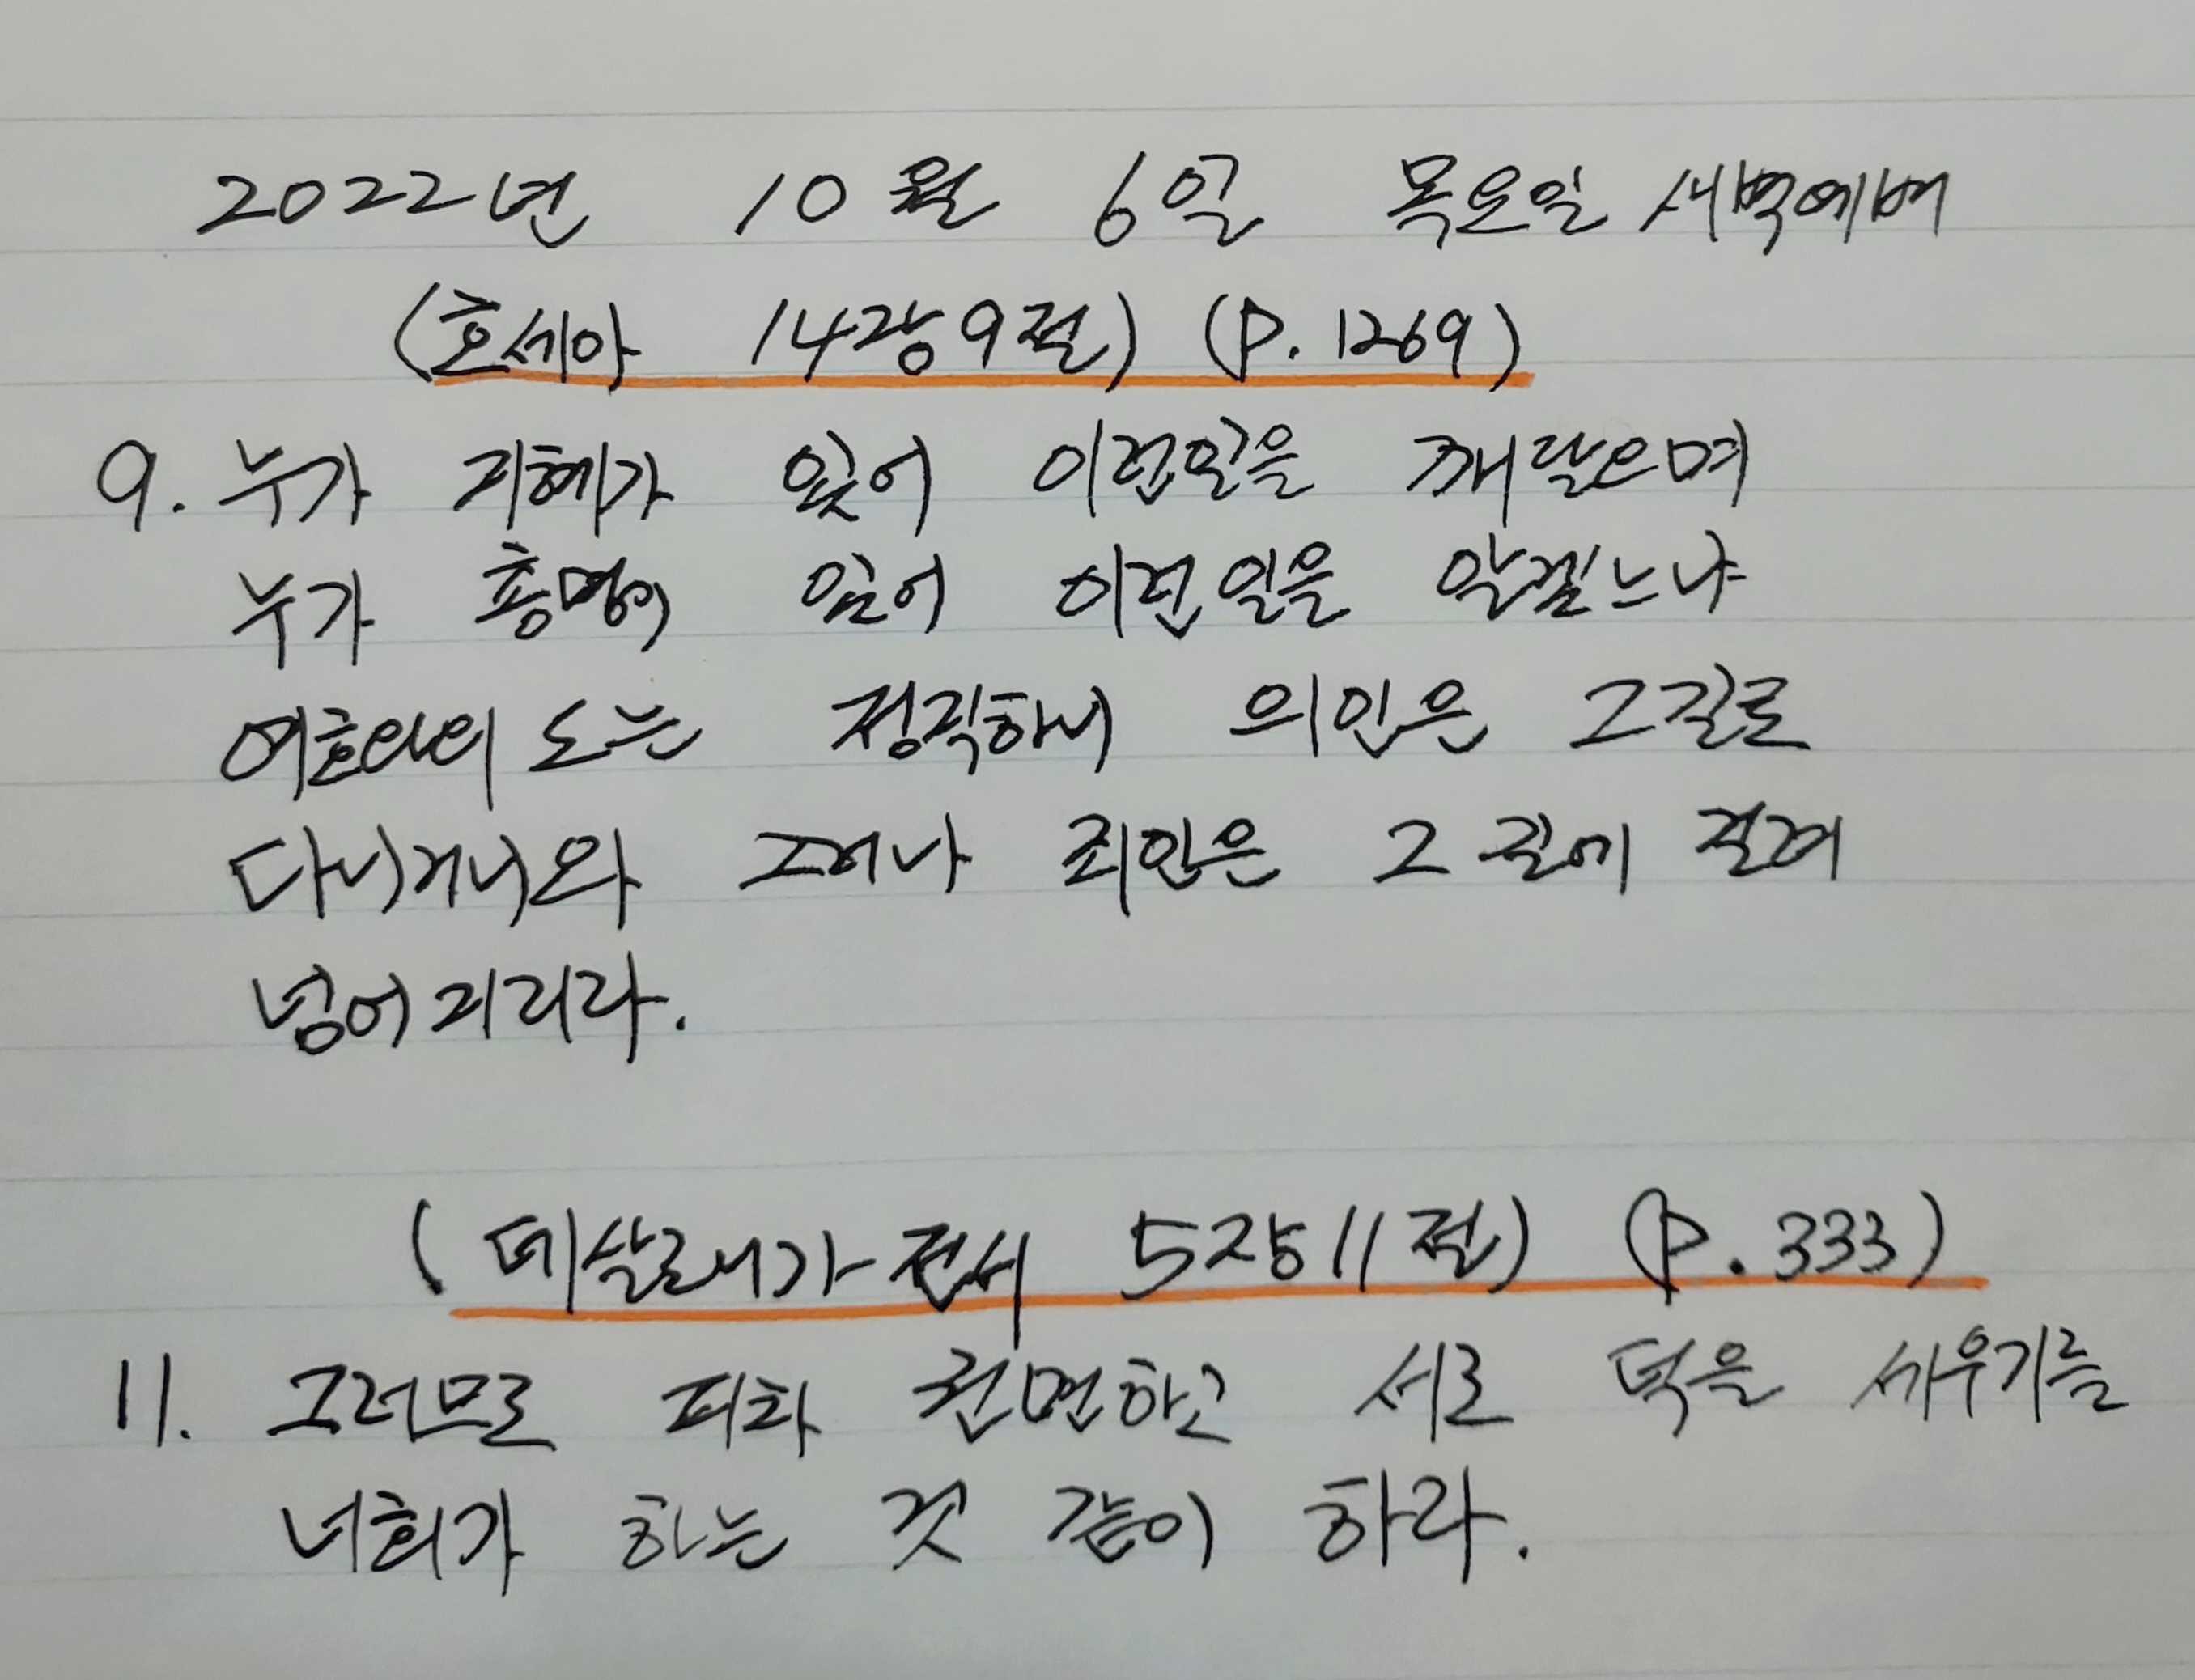 2022년 10월 6일 목요일 새벽예배
(호세아 14장 9절) (P. 1269)
9. 누가 지혜가 있어 이런일을 깨달으며
누가 총명이 있어 이런일을 알겠느냐
여호와의 도는 정직하니 의인은 그길로
다니거니와 그러나 죄인은 그 길에 걸려
넘어지리라.
(데살로니가 전서 5장 11절) (P. 333)
11. 그러므로 피차 권면하고 서로 덕을 세우기를
너희가 하는 것 같이 하라.